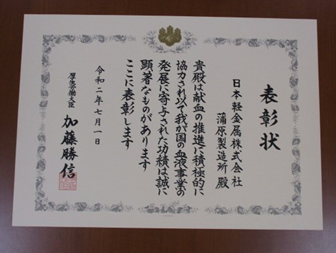 表彰状
日本軽金属株式会社
蒲原製造所 殿
貴殿は献血の推進に積極的に
協力され以て我が国の血液事業の
発展に寄与された功績は誠に
顕著なものがあります
ここに表彰します
令和二年七月一日
厚生労働大臣 加藤勝信